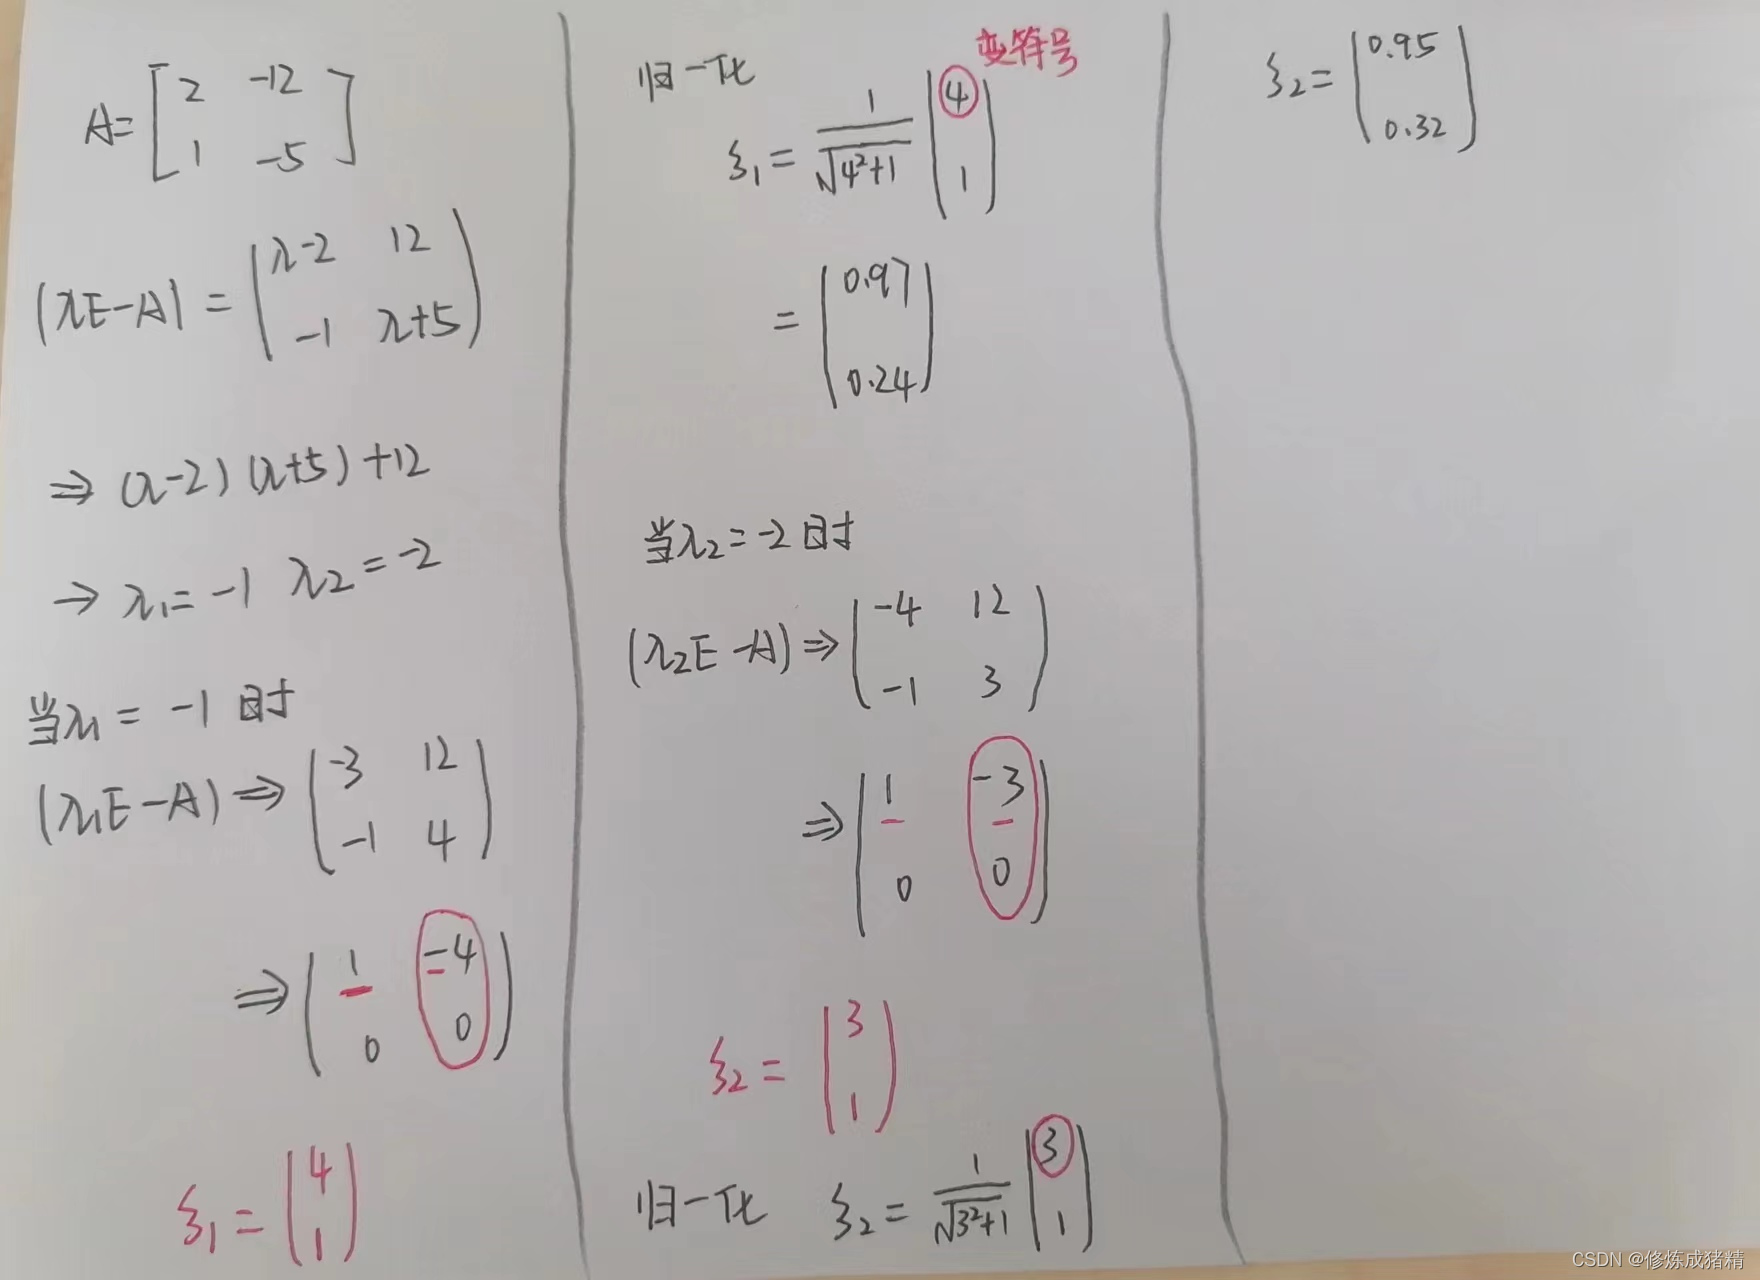 A=[2 -12
1 -5]
|λE-A| = (λ-2 12
-1 λ+5)
⇒ (λ-2)(λ+5)+12
→ λ₁=-1 λ₂=-2
当λ₁=-1时
(λ₁E-A)⇒(-3 12
-1 4)
⇒(1 -4
0 0)
ξ₁=(4
1)
归一化
变符号
ξ₁=1/√4²+1 (4
1)
=(0.97
0.24)
当λ₂=-2时
(λ₂E-A)⇒(-4 12
-1 3)
⇒(1 -3
0 0)
ξ₂=(3
1)
归一化 ξ₂=1/√3²+1 (3
1)
ξ₂=(0.95
0.32)
CSDN @修炼成猪精